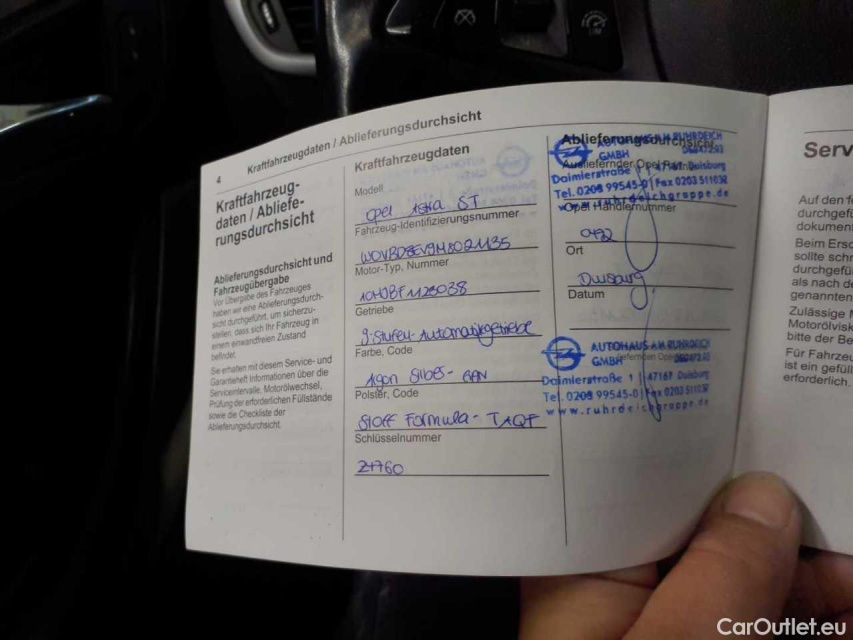 4
Kraftfahrzeugdaten / Ablieferungsdurchsicht
Kraftfahrzeug-
daten / Abliefe-
rungsdurchsicht
Ablieferungsdurchsicht und
Fahrzeugübergabe
Vor Übergabe des Fahrzeuges
haben wir eine Ablieferungsdurch-
sicht durchgeführt, um sicherzu-
stellen, dass sich Ihr Fahrzeug in
einem einwandfreien Zustand
befindet.
Sie erhalten mit diesem Service- und
Garantieheft Informationen über die
Serviceintervalle, Motorölwechsel,
Prüfung der erforderlichen Füllstände
sowie die Checkliste der
Ablieferungsdurchsicht.
Kraftfahrzeugdaten
Modell
Opel Astra ST
Fahrzeug-Identifizierungsnummer
Motor-Typ, Nummer
Getriebe
9-Stufen-Automatikgetriebe
Farbe, Code
Argon Silber - GAN
Polster, Code
Stoff Formula - TAQF
Schlüsselnummer
Z1760
Ablieferungsdurchsicht
AUTOHAUS AM RUHRDEICH
GMBH
Ausliefernder Opel Partner
Daimlerstraße 1 | 47167 Duisburg
Tel. 0203 99545-0 | Fax 0203 511032
www.ruhrdeichgruppe.de
Opel Händlernummer
Ort
Duisburg
Datum
AUTOHAUS AM RUHRDEICH
GMBH
Daimlerstraße 1 | 47167 Duisburg
Tel. 0203 99545-0 | Fax 0203 511032
www.ruhrdeichgruppe.de
Serv
Auf den f
durchgefü
dokumen
Beim Ersc
sollte schr
durchgefü
als nach de
genannten
Zulässige M
Motorölvisk
bitte der Be
Für Fahrzeu
ist ein gefüll
erforderlich.
CarOutlet.eu